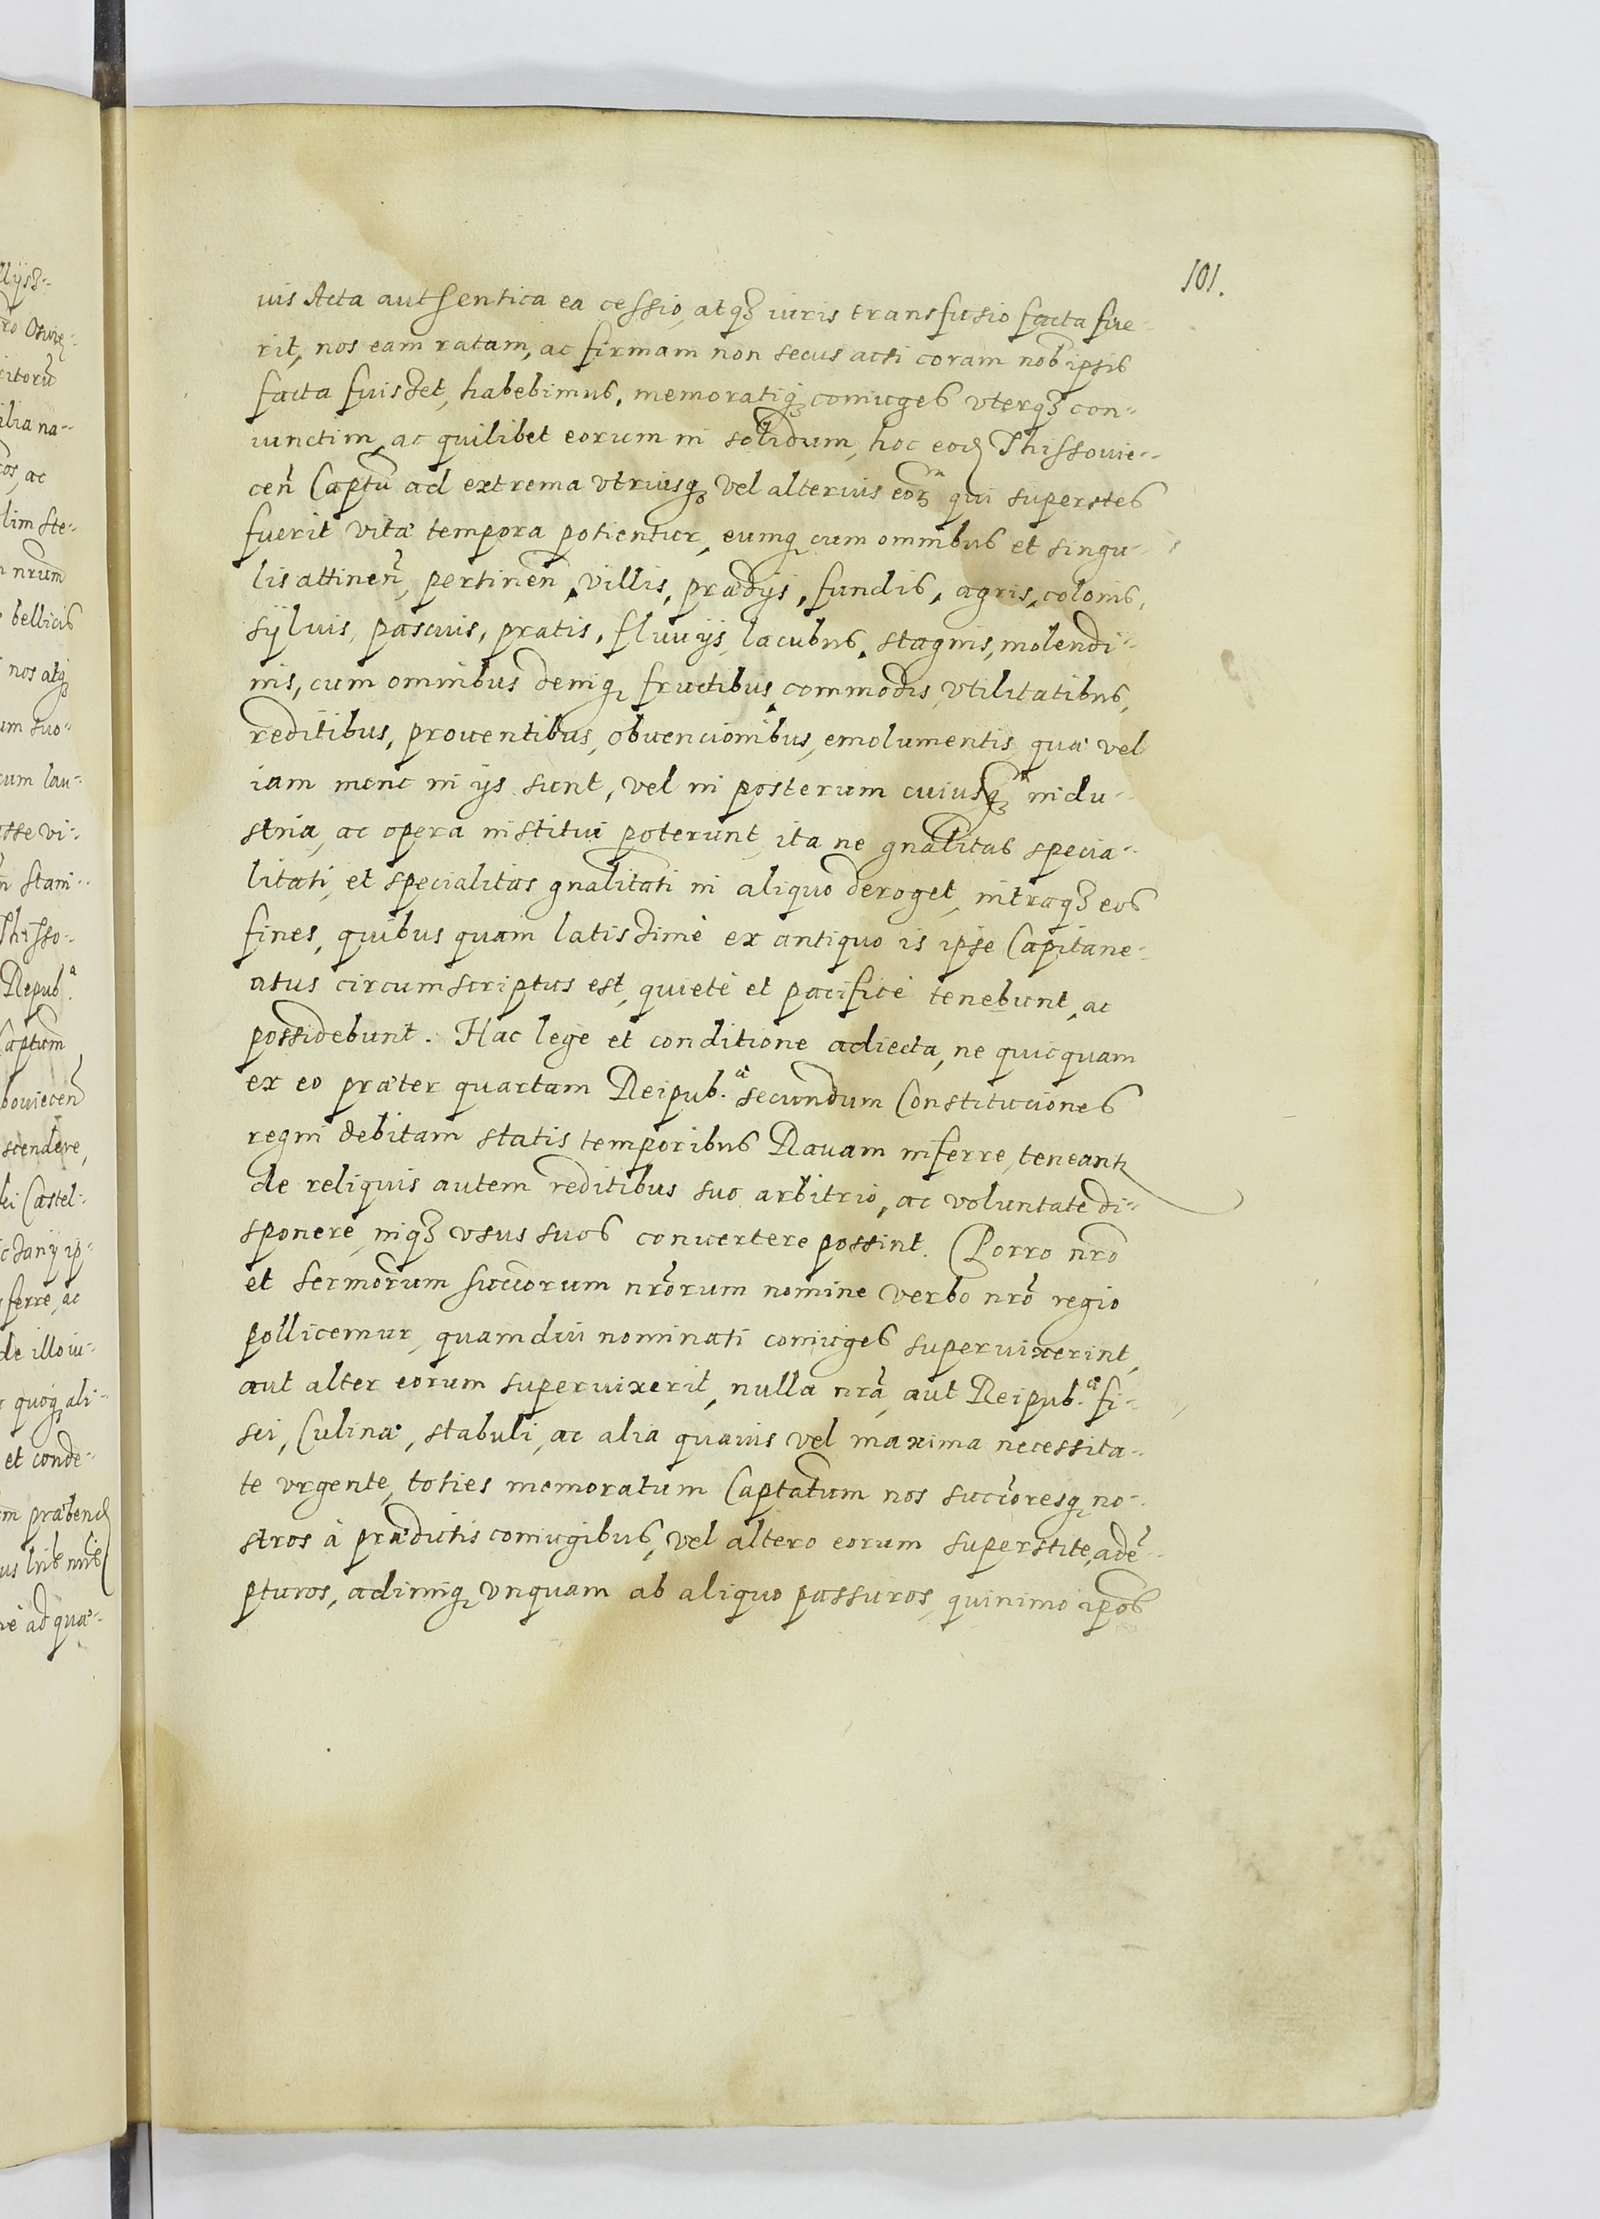 101.
uis Acta authentica ea cessio, atq3 iuris transfusio facta fue-
rit, nos eam ratam, ac firmam non secus acsi coram nob ipsis
facta fuisset, habebimus, memoratiq3 coniuges vterq3 con-
iunctim, ac quilibet eorum in solidum, hoc eod Thissouie-
cen̄ Captū ad extrema vtriusq3 vel alterius eor3 qui superstes
fuerit vitæ tempora potientur, eumq3 cum omnibus et singu-
lis attinen̄, pertinen̄, villis, prædijs, fundis, agris, colonis,
syluis, pascuis, pratis, fluuijs, lacubus, stagnis, molendi-
nis, cum omnibus deniq3 fructibus, commodis, vtilitatibus,
reditibus, prouentibus, obuencionibus, emolumentis, quæ vel
iam nunc in ijs sunt, vel in posterum cuiusq3 indu-
stria, ac opera institui poterunt, ita ne gnalitas specia-
litati, et specialitas gnalitati in aliquo deroget, intraq3 eos
fines, quibus quàm latissimè ex antiquo is ipse Capitane-
atus circumscriptus est, quietè et pacificè tenebunt, ac
possidebunt. Hac lege et conditione adiecta, ne quicquam
ex eo præter quartam Reipub.æ secundum Constituciones
regni debitam statis temporibus Rauam inferre, teneant
de reliquis autem reditibus suo arbitrio, ac voluntate di-
sponere, inq3 vsus suos conuertere possint. Porro nr̄o
et Sermorum succorum nr̄orum nomine verbo nr̄o regio
pollicemur, quamdiu nominati coniuges superuixerint,
aut alter eorum superuixerit, nulla nr̄a, aut Reipub.æ fi-
sci, Culinæ, stabuli, ac alia quauis vel maxima necessita-
te vrgente, toties memoratum Captatum nos succ̄oresq3 no-
stros à prædictis coniugibus, vel altero eorum superstite, adē-
pturos, adimiq3 vnquam ab aliquo passuros, quinimo ipsos